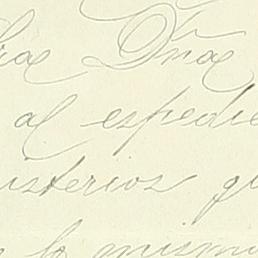 Sra Dña
al expedie
isterios q
lo mismo